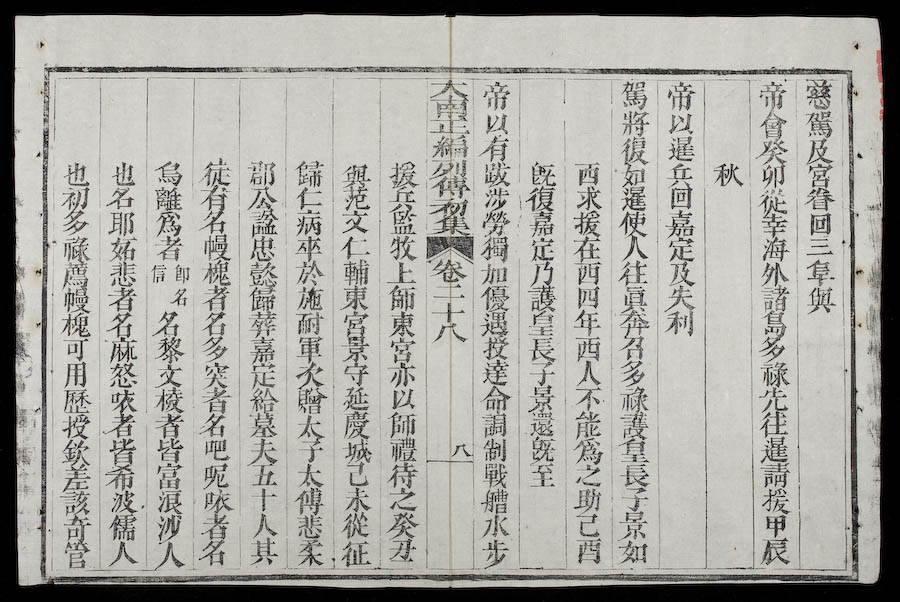 慈駕及宮眷回三阜與
帝會癸卯從幸海外諸島多祿先往暹請援甲辰
秋
帝以暹兵回嘉定及失利
駕將復如暹使人往眞奔召多祿護皇長子景如
西求援在西四年西人不能爲之助己酉
旣復嘉定乃護皇長子景還旣至
帝以有跋涉勞獨加優遇授達命調制戰艚水步
大南正編列傳初集 卷二十八 八
援兵監牧上師東宮亦以師禮待之癸丑
與范文仁輔東宮景守延慶城己未從征
歸仁病卒於施耐軍次贈太子太傅悲柔
郡公諡忠懿歸葬嘉定給墓夫五十人其
徒有名幔槐者名多突者名吧呢𠲖者名
烏離爲者卽名信名黎文棱者皆富浪沙人
也名耶妬悲者名麻怒𠲖者皆希波儒人
也初多祿薦幔槐可用歷授欽差該奇管